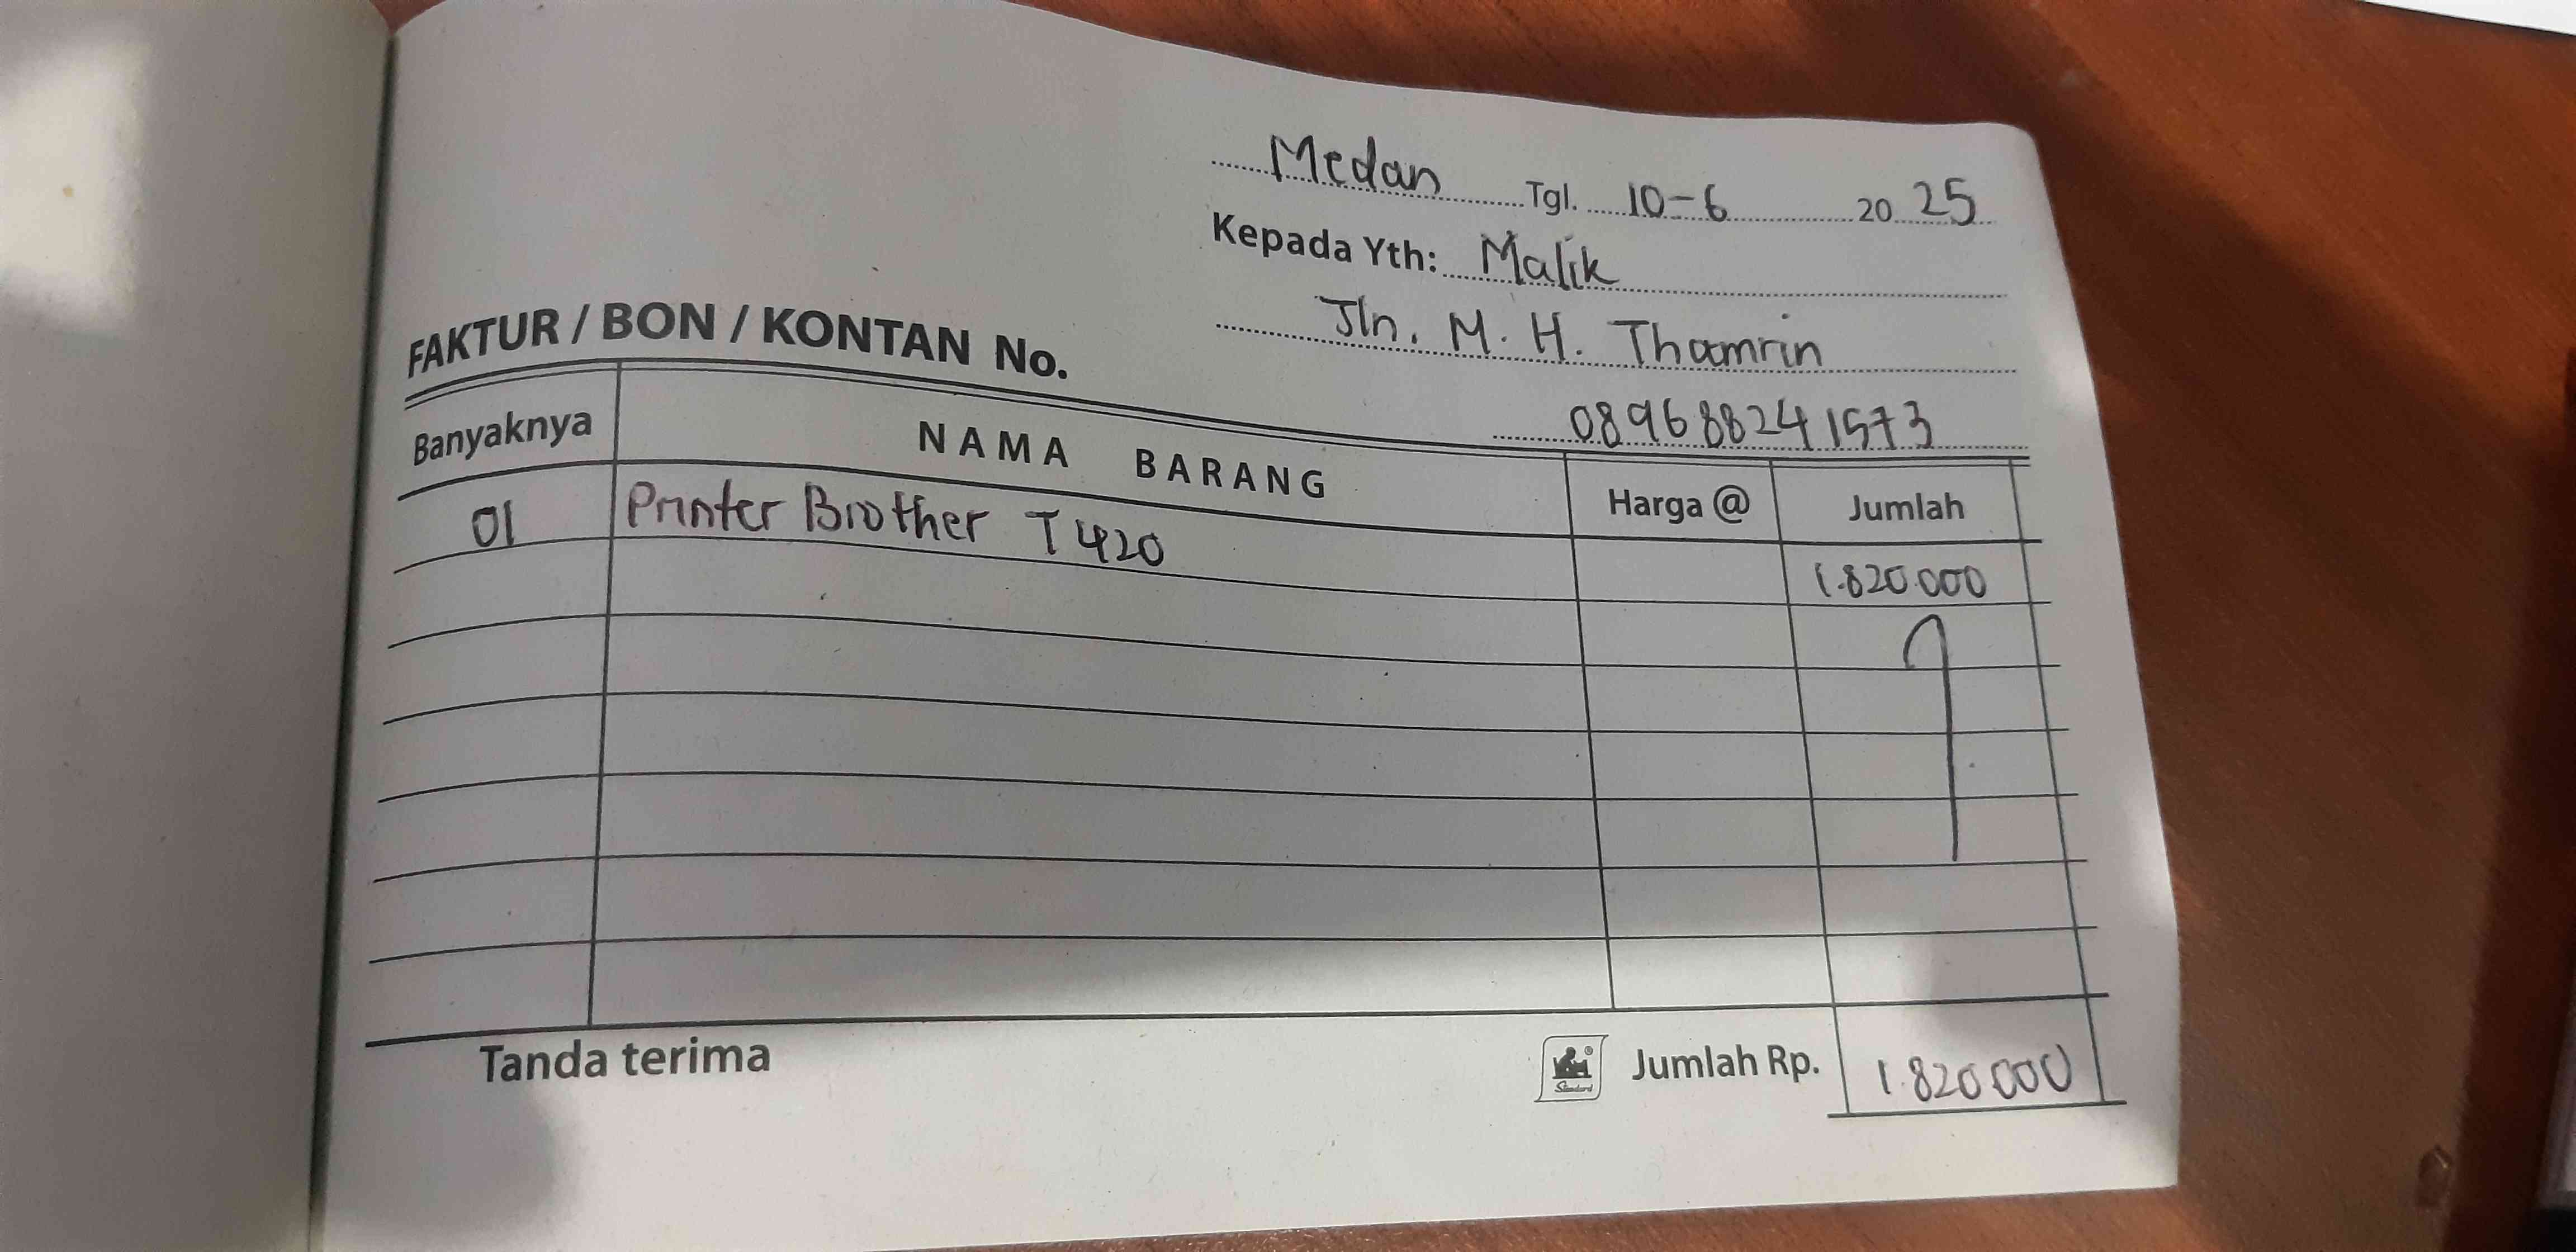 Medan Tgl. 10-6 2025
Kepada Yth: Malik
Jln. M. H. Thamrin
089688241573
FAKTUR / BON / KONTAN No.
Banyaknya NAMA BARANG Harga @ Jumlah
01 Printer Brother T420 1.820.000
Tanda terima Standard Jumlah Rp. 1.820.000